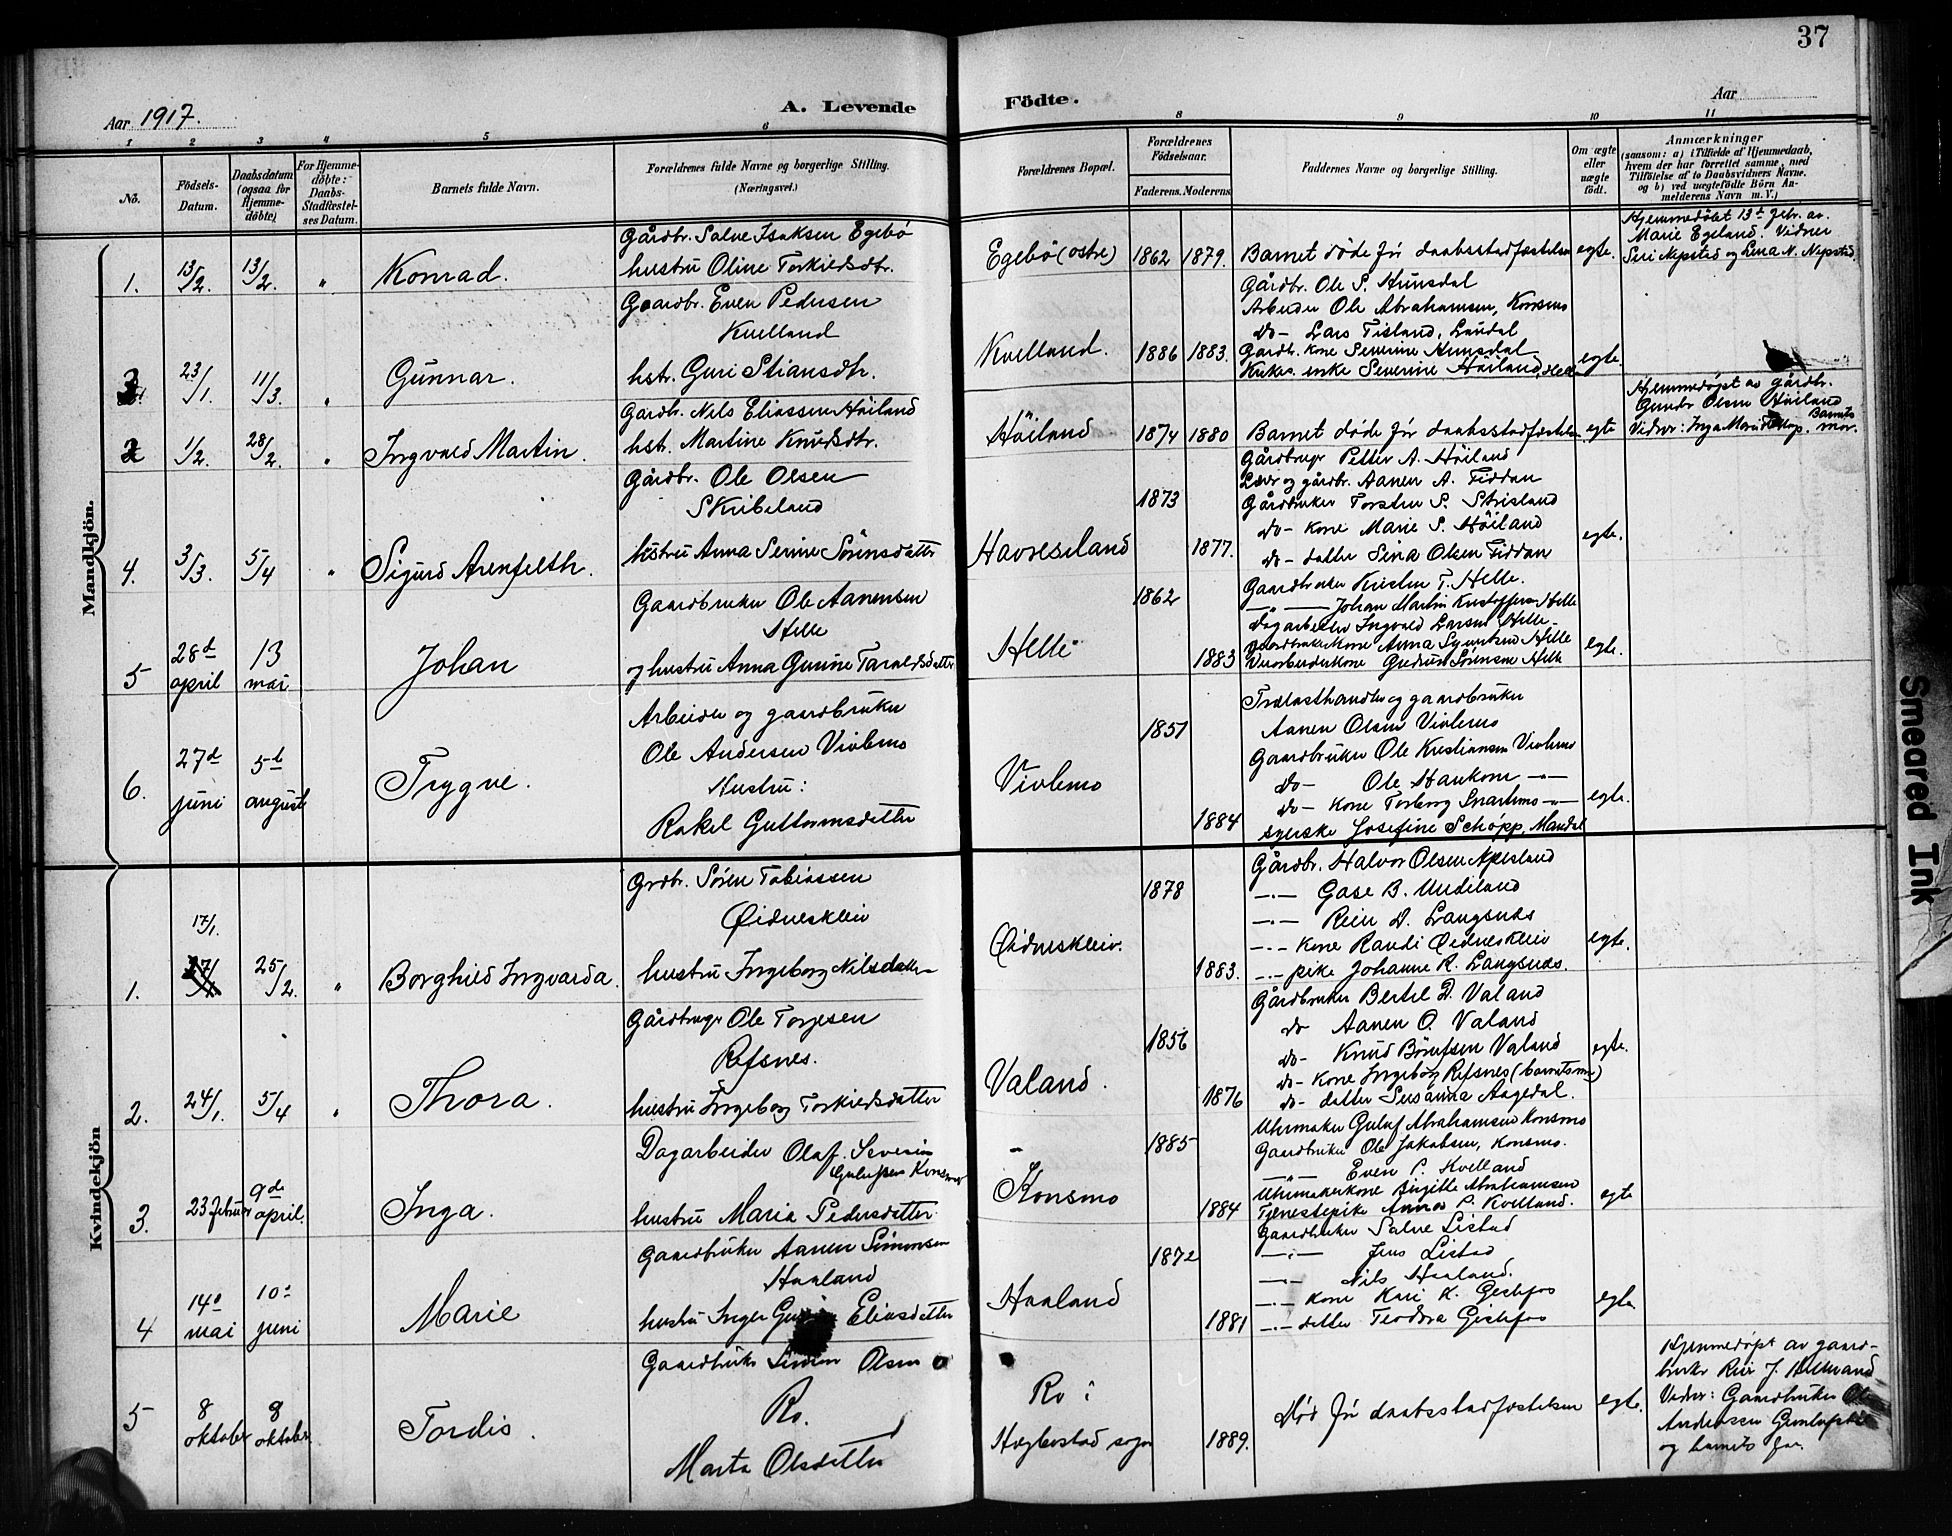 37
Aar 1917.
A. Levende
Födte.
Aar
1
2
3
4
5
6
8
9
10
11
No.
Födsels-
Datum.
Daabsdatum
(ogsaa for
Hjemme-
döbte).
For Hjemme-
döbte:
Daabs-
Stadfæstel-
ses Datum.
Barnets fulde Navn.
Forældrenes fulde Navne og borgerlige Stilling.
(Næringsvei.)
Forældrenes Bopæl.
Forældrenes
Födselsaar.
Faderens.
Moderens.
Faddernes Navne og borgerlige Stilling.
Om ægte
eller
uægte
födt.
Anmærkninger
(saasom: a) i Tilfælde af Hjemmedaab,
hvem der har forrettet samme, med
Tilföielse af to Daabsvidners Navne.
og b) ved uægtefödte Börn An-
melderens Navn m. V.)
Mandkjön.
1.
13/2.
13/2.
"
Konrad.
Gårdbr. Salve Isaksen Egebö
hustru Oline Torkildsdtr.
Egebö (östre)
1862
1879.
Barnet döde för daabsstadfæstelsen
egte.
Hjemmedöbt 13d febr. av
Marie Egeland. Vidner
Siri Nepstad og Lena N. Nepstad.
3
23/1.
11/3.
"
Gunnar.
Gaardbr. Even Pedersen
Kvelland
hstr. Guri Stiansdtr.
Kvelland.
1886
1883.
Gårdbr. Ole S. Hunsdal
Arbeider Ole Abrahamsen, Konsmo
do- Lars Tisland, Laudal
Gårdb. kone Severine Hunsdal
enke Severine Höiland, Helle
egte.
2
1/2.
28/2.
"
Ingvald Martin.
Gårdb. Nils Eliassen Höiland
hst. Martine Knudsdtr.
Höiland
1874
1880
Barnet döde för daabsstadfæstelsen
egte
Hjemmedöpt av gårdbr.
Olsen Höiland
Vidner: Inga Marie og Barnets
mor.
4.
3/3.
5/4
"
Sigurd Arenfelth.
Gårdbr. Ole Olsen
Skibeland
hustru Anna Serine Sörensdatter
Havresland
1873
1877.
Gårdbruger Petter A. Höiland
Lærer og gårdbr. Aanen A. Fiddan
Gårdbruker Torsten S. Strisland
do- kone Marie S. Höiland
do- datter Sina Olsen Fiddan
egte.
5
28d
april
13
mai
Johan
Gaardbruker Ole Aanensen
Helle
og hustru Anna Gurine Taraldsdatter
Helle
1862
1883
Gaardbruker Kristen T. Helle.
-"- Johan Martin Kristoffersen Helle
Dagarbeider Ingvald Larsen Helle
Gaardbrukerkone Anna Syvertsen Helle
Gudrun Sörensen Helle
egte.
6.
27d
juni
5te
august
Trygve.
Arbeider og gaardbruker
Ole Andersen Vivlemo
Hustru:
Rakel Guttormsdatter
Vivlemo
1851
1884
Trælasthandler og gaardbruker
Aanen Olsen Vivlemo
Gaardbruker Ole Kristiansen Vivlemo
do- Ole Haukom -"-
do- kone Torborg Snartemo -"-
syerske Josefine Schöpp, Mandal
egte.
Kvindekjön
1.
17/1.
25/2.
"
Borghild Ingvarda.
Grdbr. Sören Tobiassen
Öidneskleiv
hustru Ingeborg Nilsdatter
Öidneskleiv.
1878
1883.
Gårdbr. Halvor Olsen Apesland
-"- Gase B. Undeland
-"- Reier D. Langsnes
-"- kone Randi Öidneskleiv
-"- pike Johanne R. Langsnes.
egte.
2.
24/1.
5/4
"
Thora.
Gårdbruger Ole Torjesen
Refsnes.
hustru Ingeborg Torkildsdatter
Valand.
1856
1876
Gårdbruker Bertel D. Valand
do Aanen O. Valand
do- Knud Börufsen Valand
do- kone Ingeborg Refsnes (barnets mor)
do- datter Susanna Aagedal.
egte.
3.
23 februar
9de
april.
Inga.
Dagarbeider Olaf Severin
Gulufsen Konsmo
hustru Maria Pedersdatter
Konsmo
1885
1884
Uhrmaker Guluf Abrahamsen Konsmo
Gaardbruker Ole Jakobsen, Konsmo.
-"- Even P. Kvelland
Uhrmakerkone Birgitte Abrahamsen
Tjenestepike Anna P. Kvelland.
egte
4
14d
mai
10d
juni
Marie
Gaardbruker Aanen Simonsen
Haaland
hustru Inger Eliasdatter
Haaland
1872
1881
Gaardbruker Salve Listad
-"- Jens Listad
-"- Nils Haaland.
-"- kone Kari K. Gislefos
-"- datter Teodora Gislefos
egte
5
8
oktober
8
oktober
Tordis.
Gaardbruker Simon Olsen
Ro.
Marta Olsdatter
Ro i
Hægbostad sogn
1889.
Död för daabsstadfæstelsen
egte.
Hjemmedöpt av gaard-
bruker Reier J.
Vidner: Gaardbruker Ole
Andreassen
og barnets far.
Smeared Ink